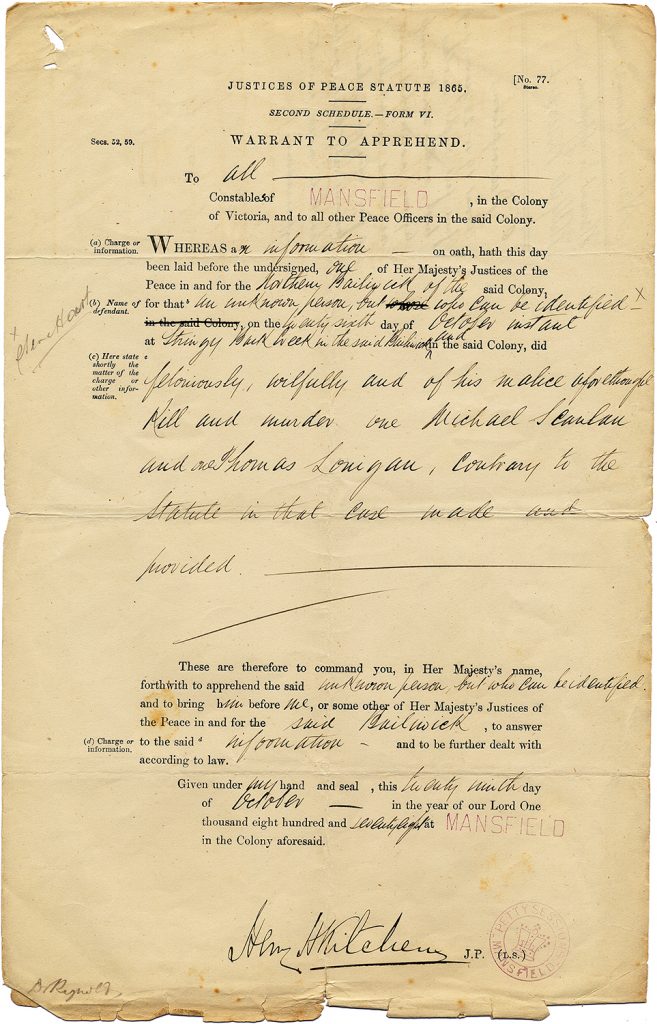 [No. 77.
JUSTICES OF PEACE STATUTE 1865.
SECOND SCHEDULE.—FORM VI.
Secs. 52, 59.
WARRANT TO APPREHEND.
To all
Constables of MANSFIELD, in the Colony
of Victoria, and to all other Peace Officers in the said Colony.
(a) Charge or information.
WHEREAS an information on oath, hath this day
been laid before the undersigned, one of Her Majesty's Justices of the
Peace in and for the Northern Bailiwick of the said Colony,
(b) Name of defendant.
for that b an unknown person, but who can be identified X
in the said Colony, on the twenty sixth day of October instant
at Stringy Bark Creek in the said Bailiwick and in the said Colony, did
(c) Here state shortly the matter of the charge or other information.
feloniously, wilfully and of his malice aforethought
Kill and murder one Michael Scanlan
and one Thomas Lonigan, contrary to the
statute in that case made and
provided.
These are therefore to command you, in Her Majesty's name,
forthwith to apprehend the said unknown person, but who can be identified
and to bring him before me, or some other of Her Majesty's Justices of
the Peace in and for the said Bailiwick, to answer
(d) Charge or information.
to the said d information and to be further dealt with
according to law.
Given under my hand and seal, this twenty ninth day
of October in the year of our Lord One
thousand eight hundred and seventy eight at MANSFIELD
in the Colony aforesaid.
Henry H Kitchen J.P. (L.S.)
PETTY SESSIONS
MANSFIELD